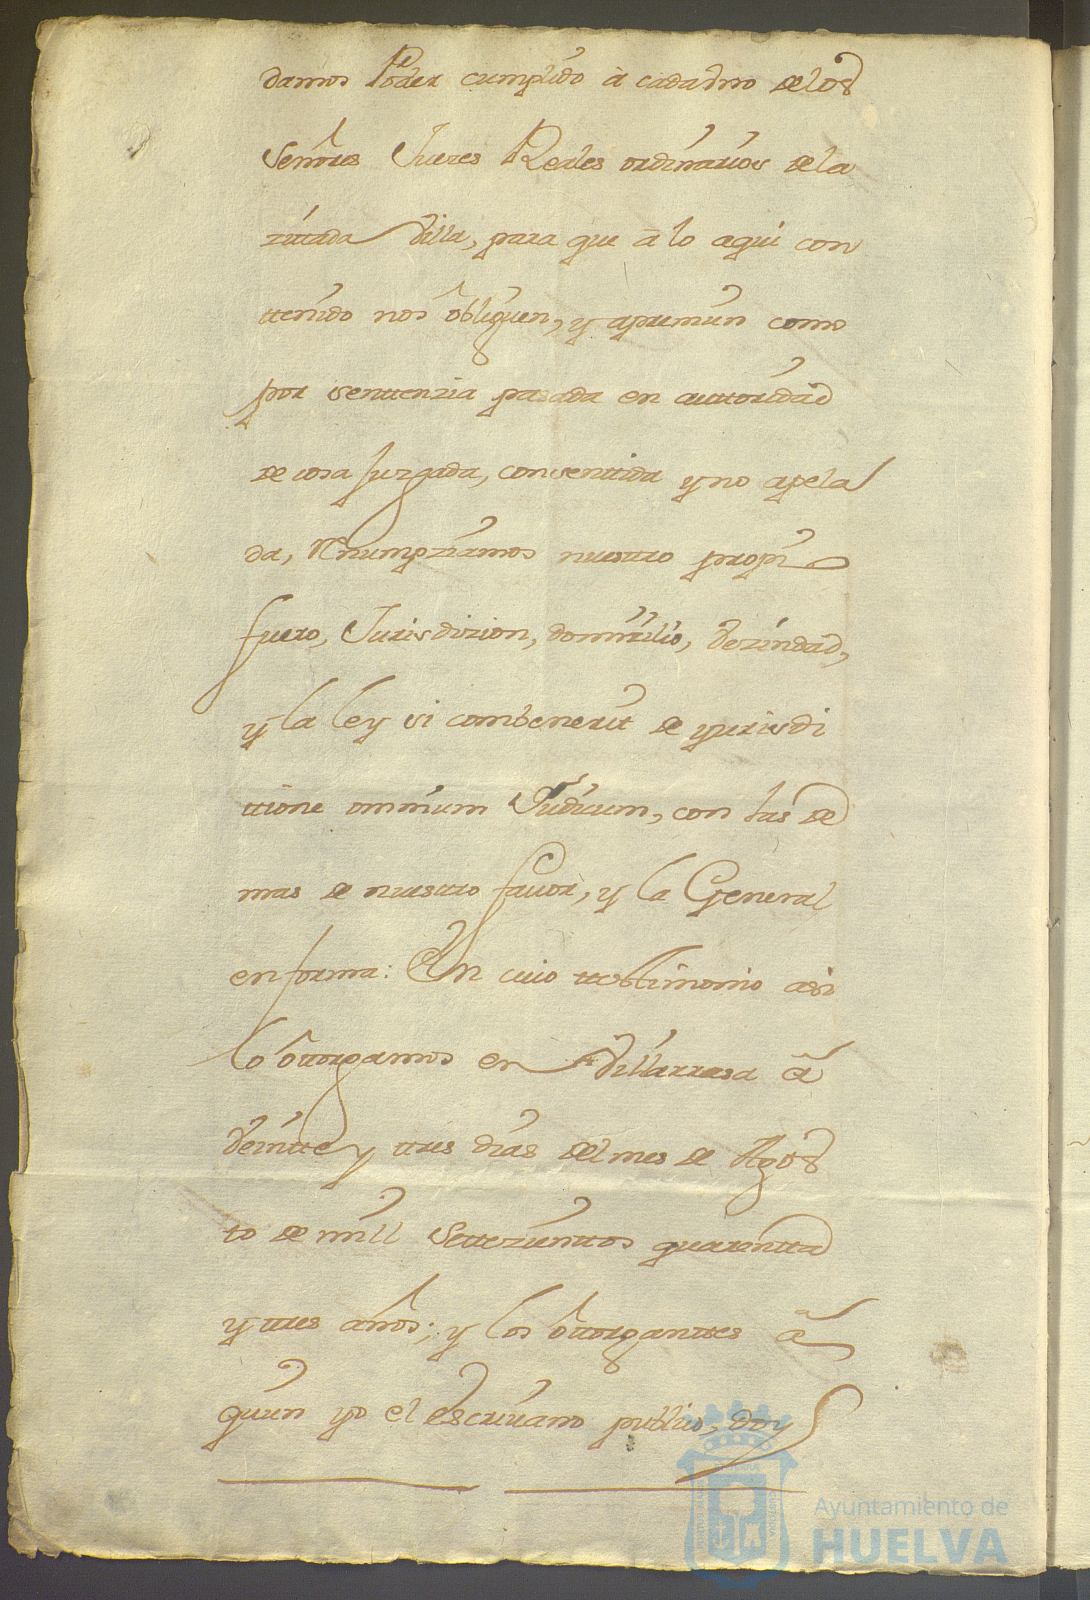 damos Poder cumplido à cada Vno de los
Señores Jueces Reales ordinarios de la
zittada Villa, para que à lo aqui con
ttenido nos obliguen, y apremien como
por senttenzia pasada en auttoridad
de cosa Juzgada, consenttida y no apela
da, Renumpziamos nuesttro propi
fuero, Jurisdizion, domizilio, Vezindad,
y la ley si combenerit de yurisdi
ttione omnium Judicum, con las de
mas de nuesttro favor, y la General
en forma: En cuio ttesttimonio asi
lo ôttorgamos en Villarrasa â
Veintte y ttres dias del mes de Agos
to de mill Settezienttos quarentta
y ttres años; y los ôttorganttes â
quien yo el escrivano publico, doy
Ayuntamiento de
HUELVA